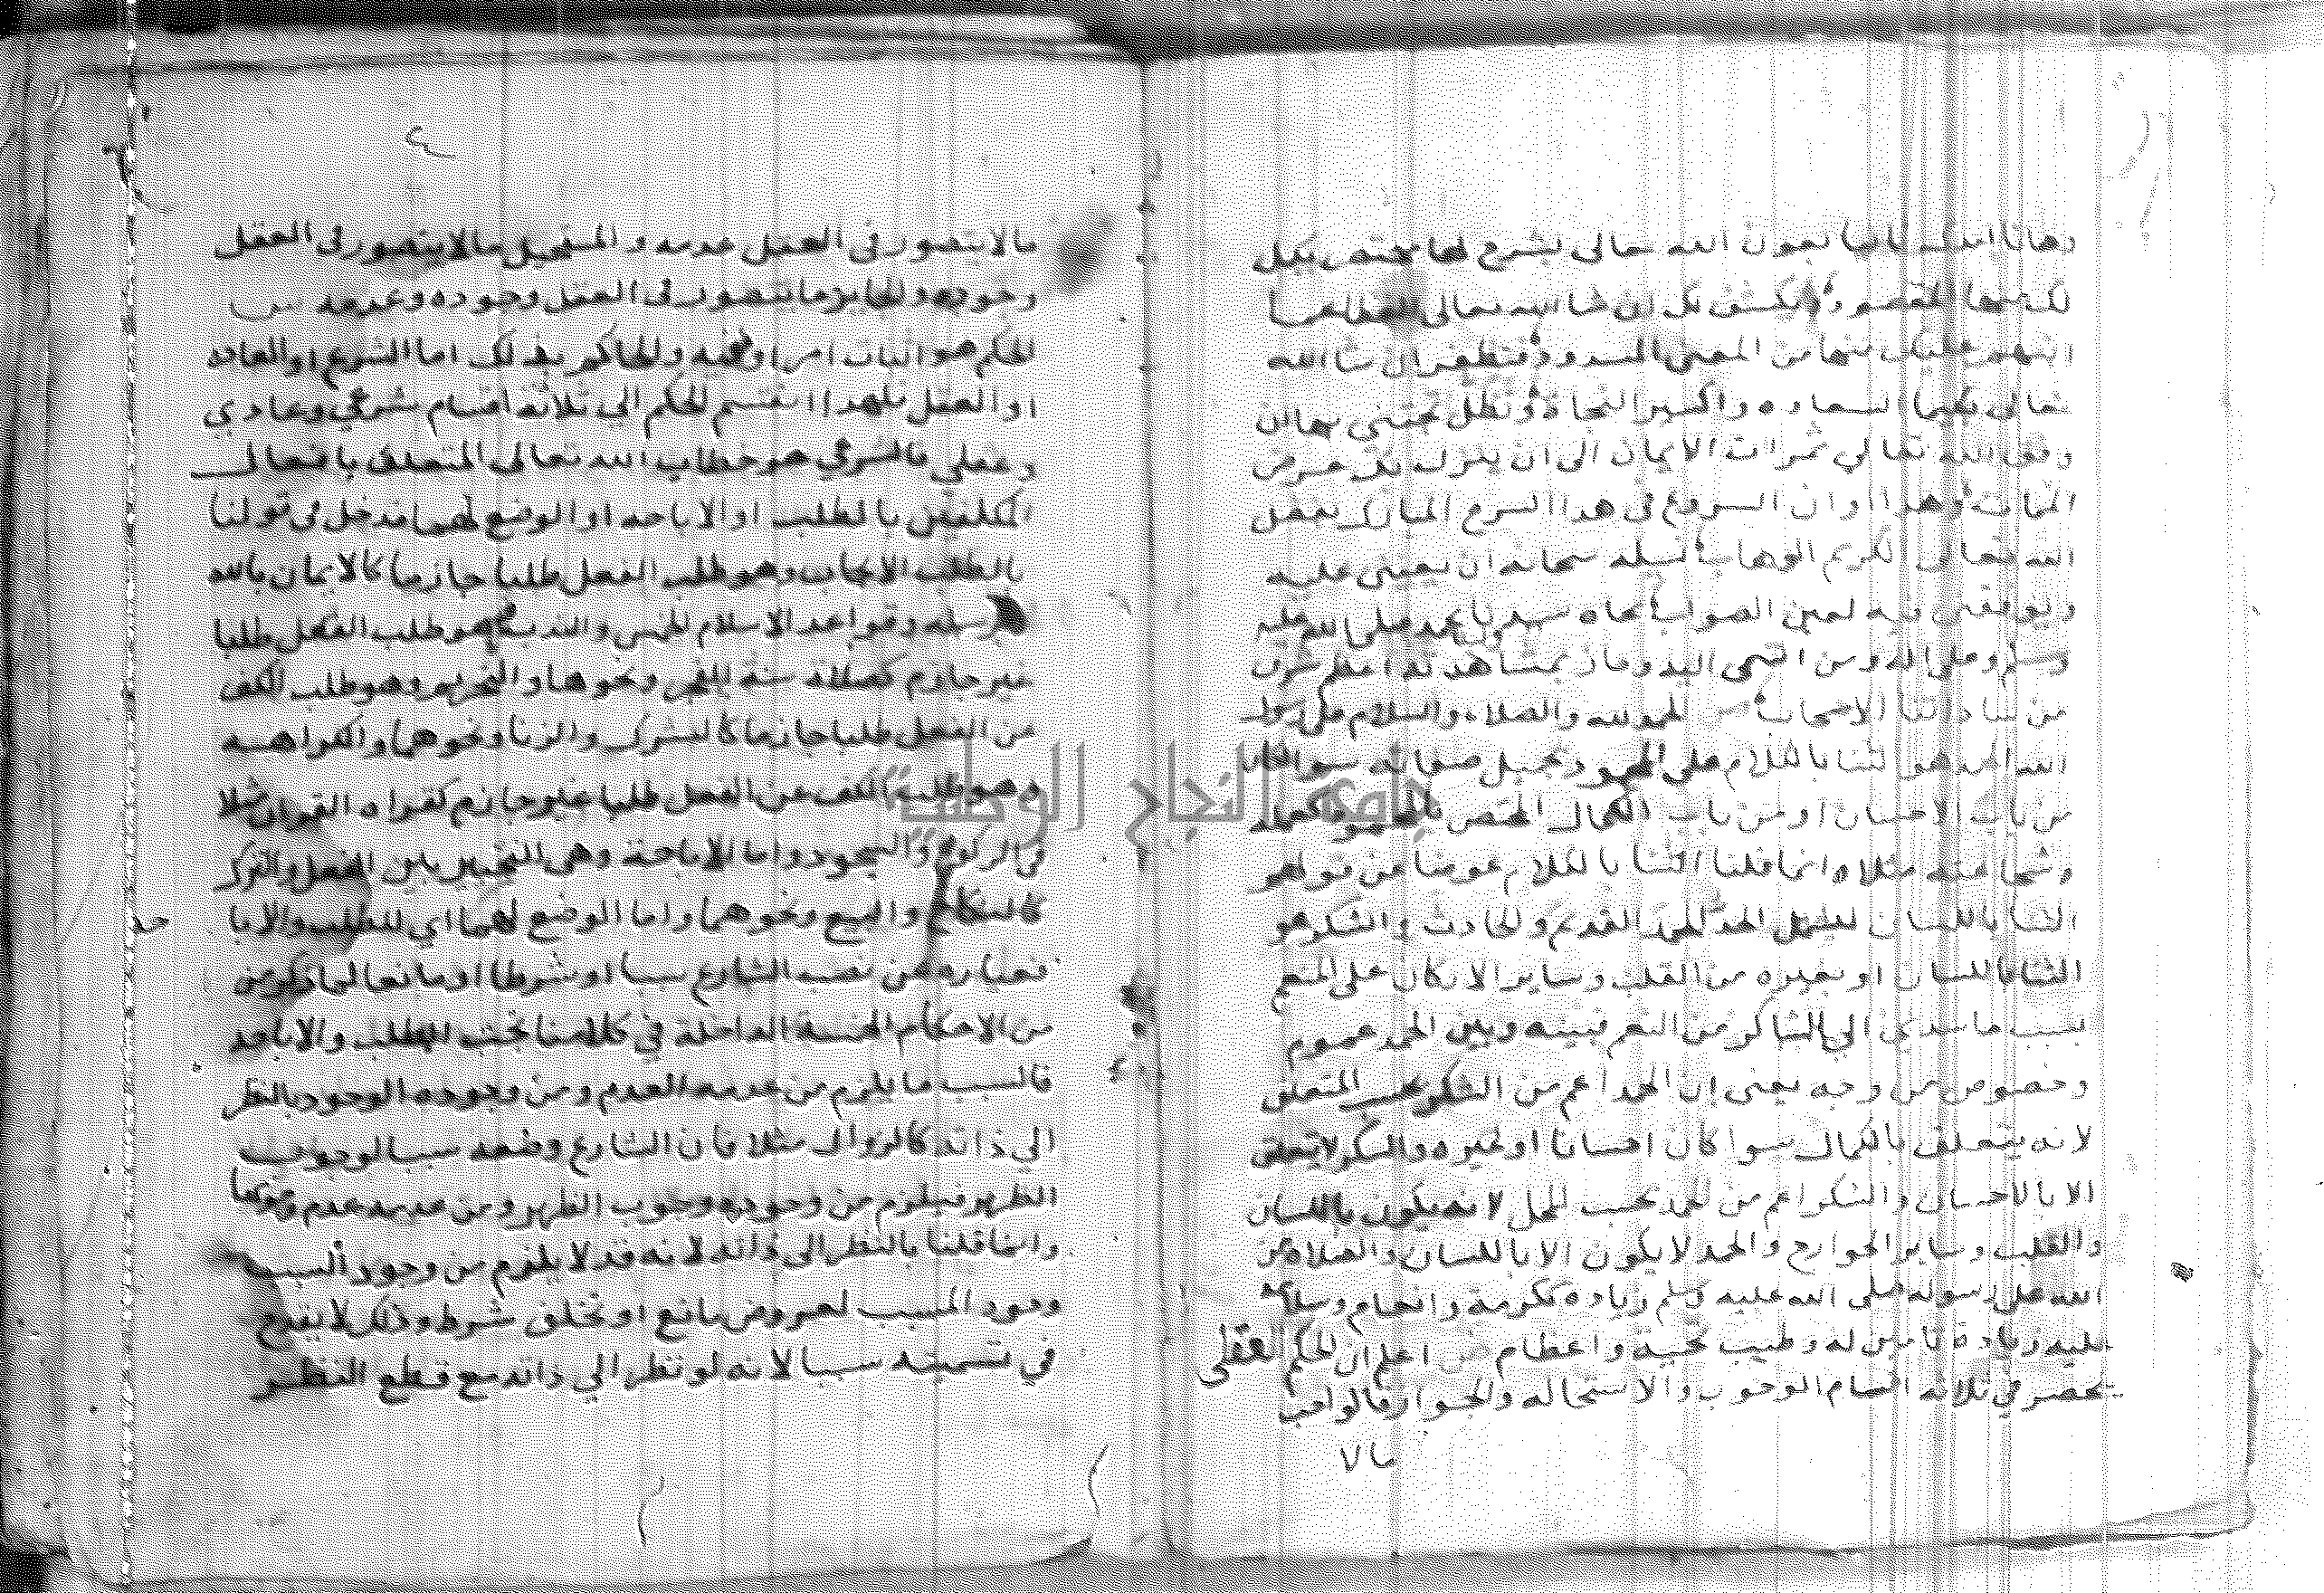 وها انا امدك ثانيا بعون الله تعالى بشرح لها مختصر يكمل
لك منها المقصود ويكشف لك ان شا الله تعالى الغطا عما
انبهم عليك منها من المعنى المسدود فتظفر ان شا الله
تعالى بكيميا السعاده واكسير النجاة وتظل تجتني بها ان
وفق الله تعالي ثمرات الايمان الى ان ينزل بك عرض
الممات وهذا اوان الشروع في هذا الشرح المبارك بفضل
الله تعالى الكريم الوهاب نسيله سبحانه ان يعينني عليه
ويوفقني فيه لعين الصواب بجاه سيدنا ومولانا محمد صلى الله عليه
وسلم وعلى اله ومن انتمى اليه وفاز بمشاهدته اعظم شرف
من ساداتنا الاصحاب ص الحمد لله والصلاه والسلام على رسول
الله الحمد هو الثنا بالكلام على المحمود بجميل صفاته سوا كان
من باب الاحسان او من باب الكمال المختص بالمحمود كعلمه
وشجاعته مثلا وانما قلنا الثنا بالكلام عوضا عن قولهم
الثنا باللسان ليشمل الحد الحمد القديم والحادث والشكر هو
الثنا باللسان او بغيره من القلب وساير الاركان على المنعم
بسبب ما اسدى الي الشاكر من النعم فبينه وبين الحمد عموم
وخصوص من وجه يعني ان الحمد اعم من الشكر بحسب المتعلق
لانه يتعلق بالكمال سوا كان احسانا او غيره والشكر لا يتعلق
الا بالاحسان والشكر اعم من الحمد بحسب المحل لانه يكون باللسان
والقلب وساير الجوارح والحمد لا يكون الا باللسان والصلاه من
الله على رسوله صلى الله عليه وسلم زياده تكرمة وانعام وسلامه
عليه زيادة تامين له وطيب تحية واعظام ص اعلم ان الحكم العقلي
ينحصر في ثلاثه اقسام الوجوب والاستحاله والجواز فالواجب
ما لا
٤
ما لا يتصور في العقل عدمه والمستحيل ما لا يتصور في العقل
وجوده والجايز ما يتصور في العقل وجوده وعدمه ش
الحكم هو اثبات امر او نفيه والحاكم بذلك اما الشرع او العاده
او العقل فلهذا انقسم الحكم الي ثلاثه اقسام شرعي وعادي
وعقلي فالشرعي هو خطاب الله تعالى المتعلق بافعال
المكلفين بالطلب او الاباحه او الوضع لهما فدخل في قولنا
بالطلب الايجاب وهو طلب الفعل طلبا جازما كالايمان بالله
ورسله وقواعد الاسلام الخمس والندب وهو طلب الفعل طلبا
غير جازم كصلاه سنة الفجر ونحوها والتحريم وهو طلب الكف
عن الفعل طلبا جازما كالشرك والزنا ونحوهما والكراهه
وهو طلب الكف عن الفعل طلبا غير جازم كقراه القران مثلا
في الركوع والسجود واما الاباحة وهي التخيير بين الفعل والترك
كالنكاح والبيع ونحوهما واما الوضع لهما اي للطلب والابا حه
فعباره عن نصب الشارع سببا او شرطا او مانعا لما ذكر من
من الاحكام الخمسة الداخلة في كلامنا تحت الطلب والاباحه
فالسبب ما يلزم من عدمه العدم ومن وجوده الوجود بالنظر
الي ذاته كالزوال مثلا فان الشارع وضعه سببا لوجوب
الظهر فيلزم من وجوده وجوب الظهر ومن عدمه عدم وجوبها
وانما قلنا بالنظر الى ذاته لانه قد لا يلزم من وجود السبب
وجود المسبب لعروض مانع او تخلف شرط وذلك لا يقدح
في تسميته سببا لانه لو نظر الي ذاته مع قطع النظر
جامعة النجاح الوطنية